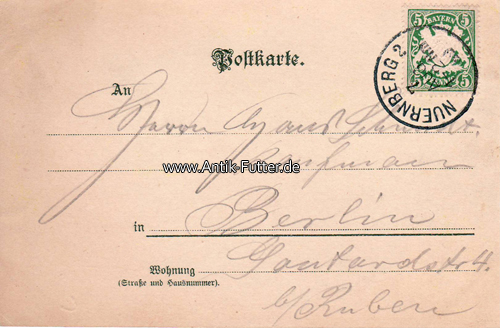 5 BAYERN 5
Postkarte.
NUERNBERG 2
An
Herrn
Kaufmann
www.Antik-Futter.de
in Berlin
Wohnung Gontardstr 4.
(Straße und Hausnummer).
b/Ruben